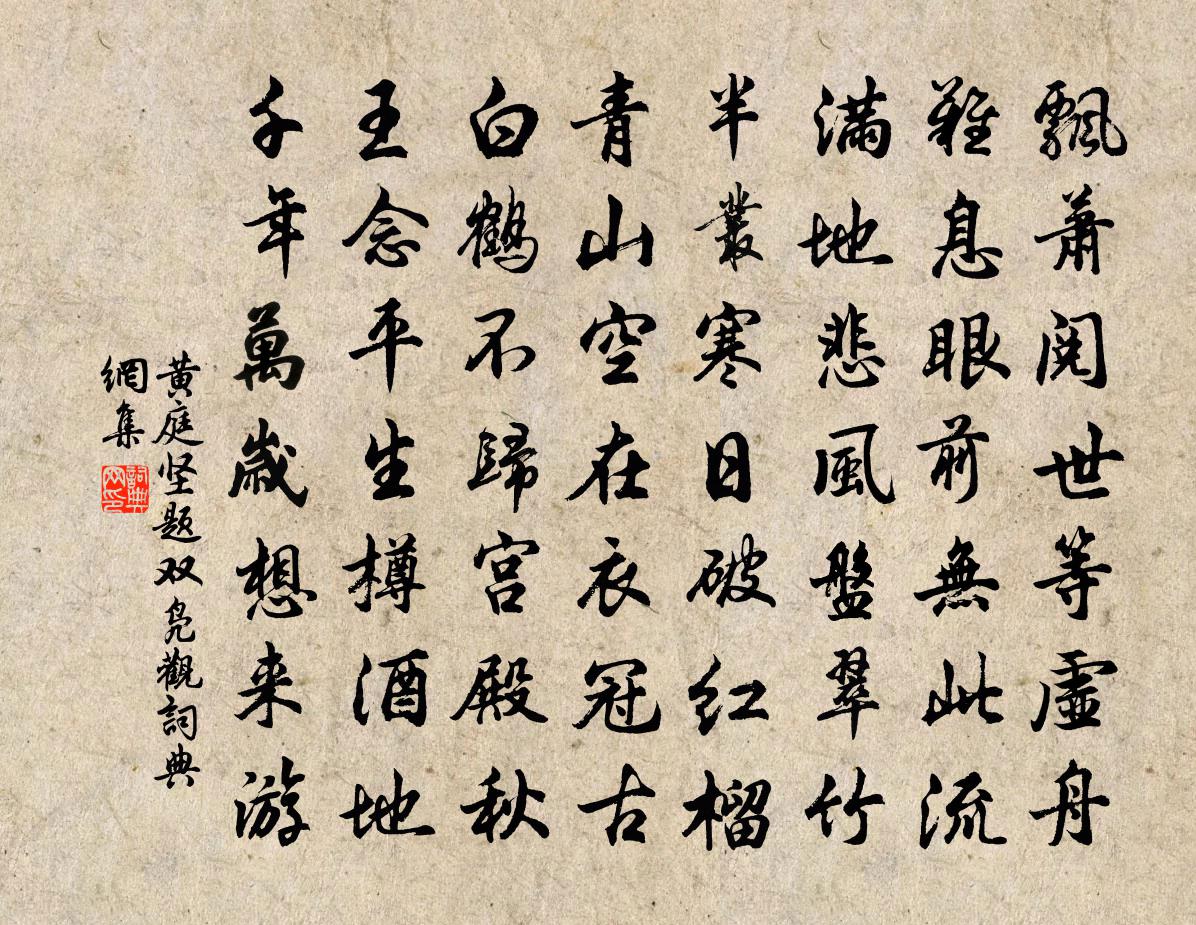 飄蕭閱世等虛舟
難息眼前無此流
滿地悲風盤翠竹
半叢寒日破紅榴
青山空在衣冠古
白鶴不歸宮殿秋
王念平生樽酒地
千年萬歲想来游
黃庭坚題双鳧觀詞典
網集
詞典网印